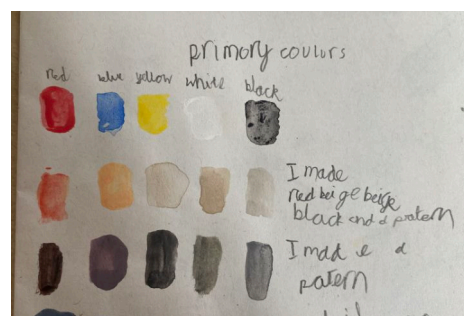 primary coulors
red blue yellow white black
I made
red beige beige
black and a pratern
I mad e a
patern